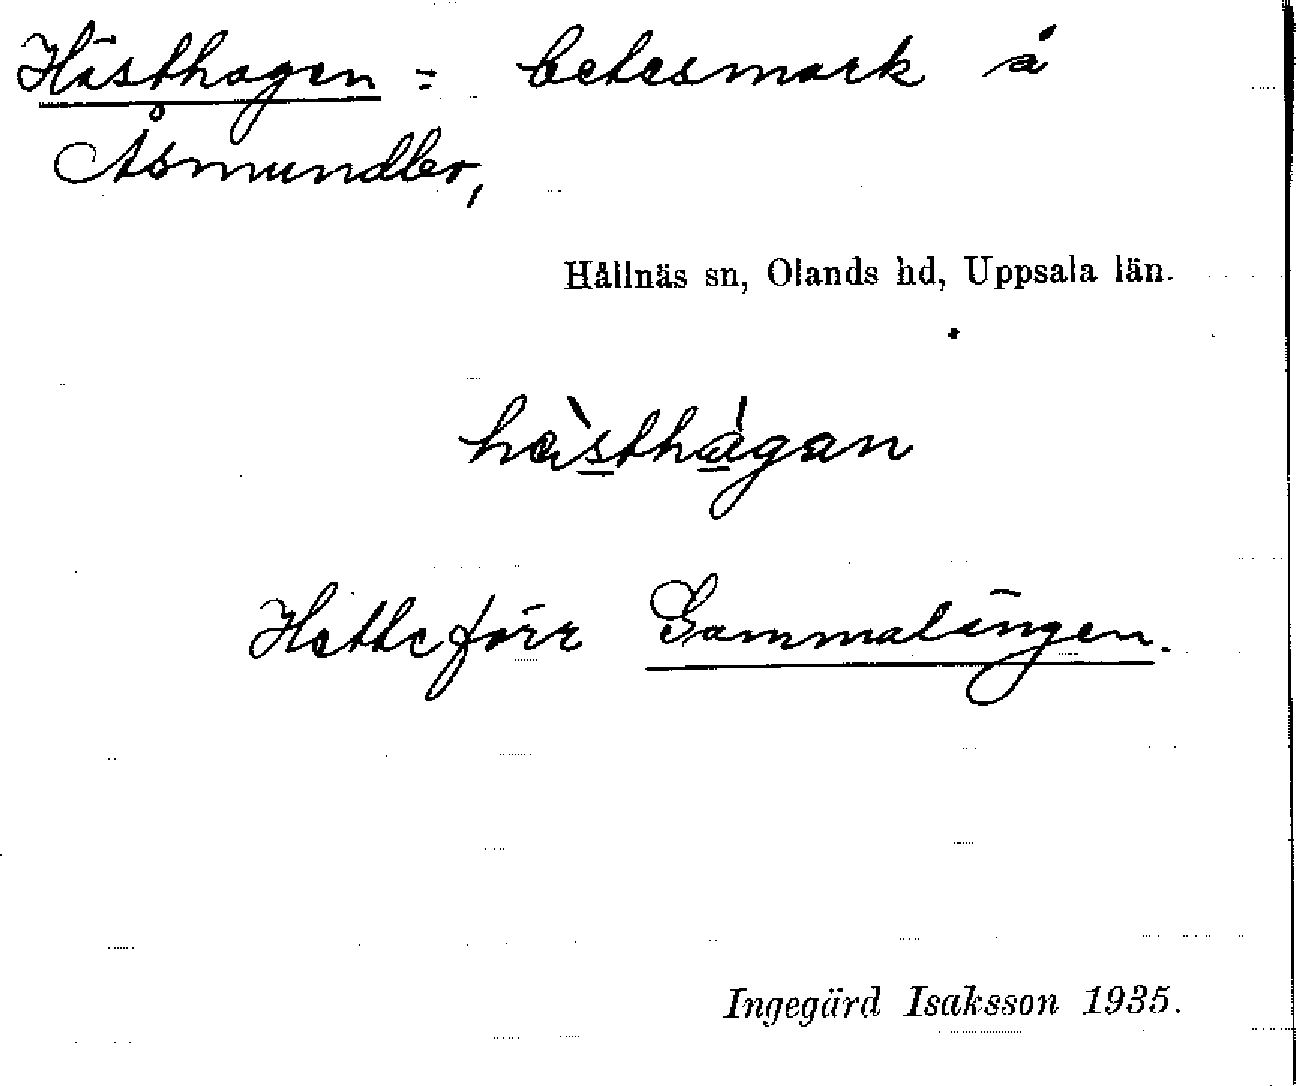 Hästhagen = betesmark å
Åsmundbo,
Hållnäs sn, Olands hd, Uppsala län.
hàsthágan
Hette förr Gammalängen.
Ingegärd Isaksson 1935.